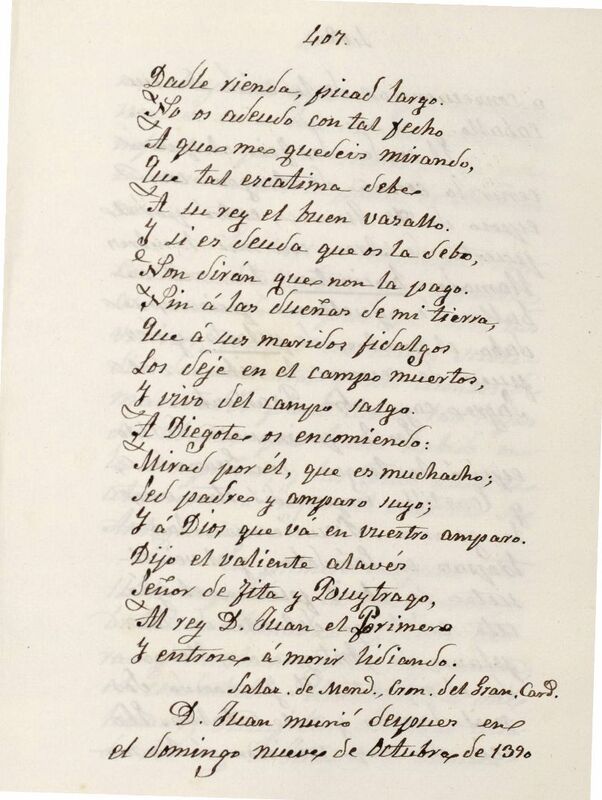 407.
Dadle rienda, picad largo.
No os adeudo con tal fecho
A que me quedeis mirando,
Que tal escatima debe
A su rey el buen vasallo.
Y si es deuda que os la debo,
Non dirán que non la pago.
Nin á las dueñas de mi tierra,
Que á sus maridos fidalgos
Los dejé en el campo muertos,
Y vivo del campo salgo.
A Diegote os encomiendo:
Mirad por él, que es muchacho;
Sed padre y amparo suyo;
Y á Dios que vá en vuestro amparo.
Dijo el valiente alavés
Señor de Fita y Buytrago,
Al rey D. Juan el Primero
Y entrose á morir lidiando.
Salaz. de Mend., Cron. del Gran. Card.
D. Juan murió deypues en
el domingo nueve de Octubre de 1390